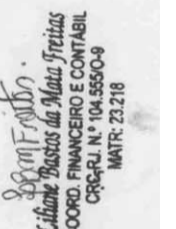 Liliane Bastos da Mata Freitas
COORD. FINANCEIRO E CONTÁBIL
CRC-RJ. N.º 104.555/O-9
MATR: 23.218